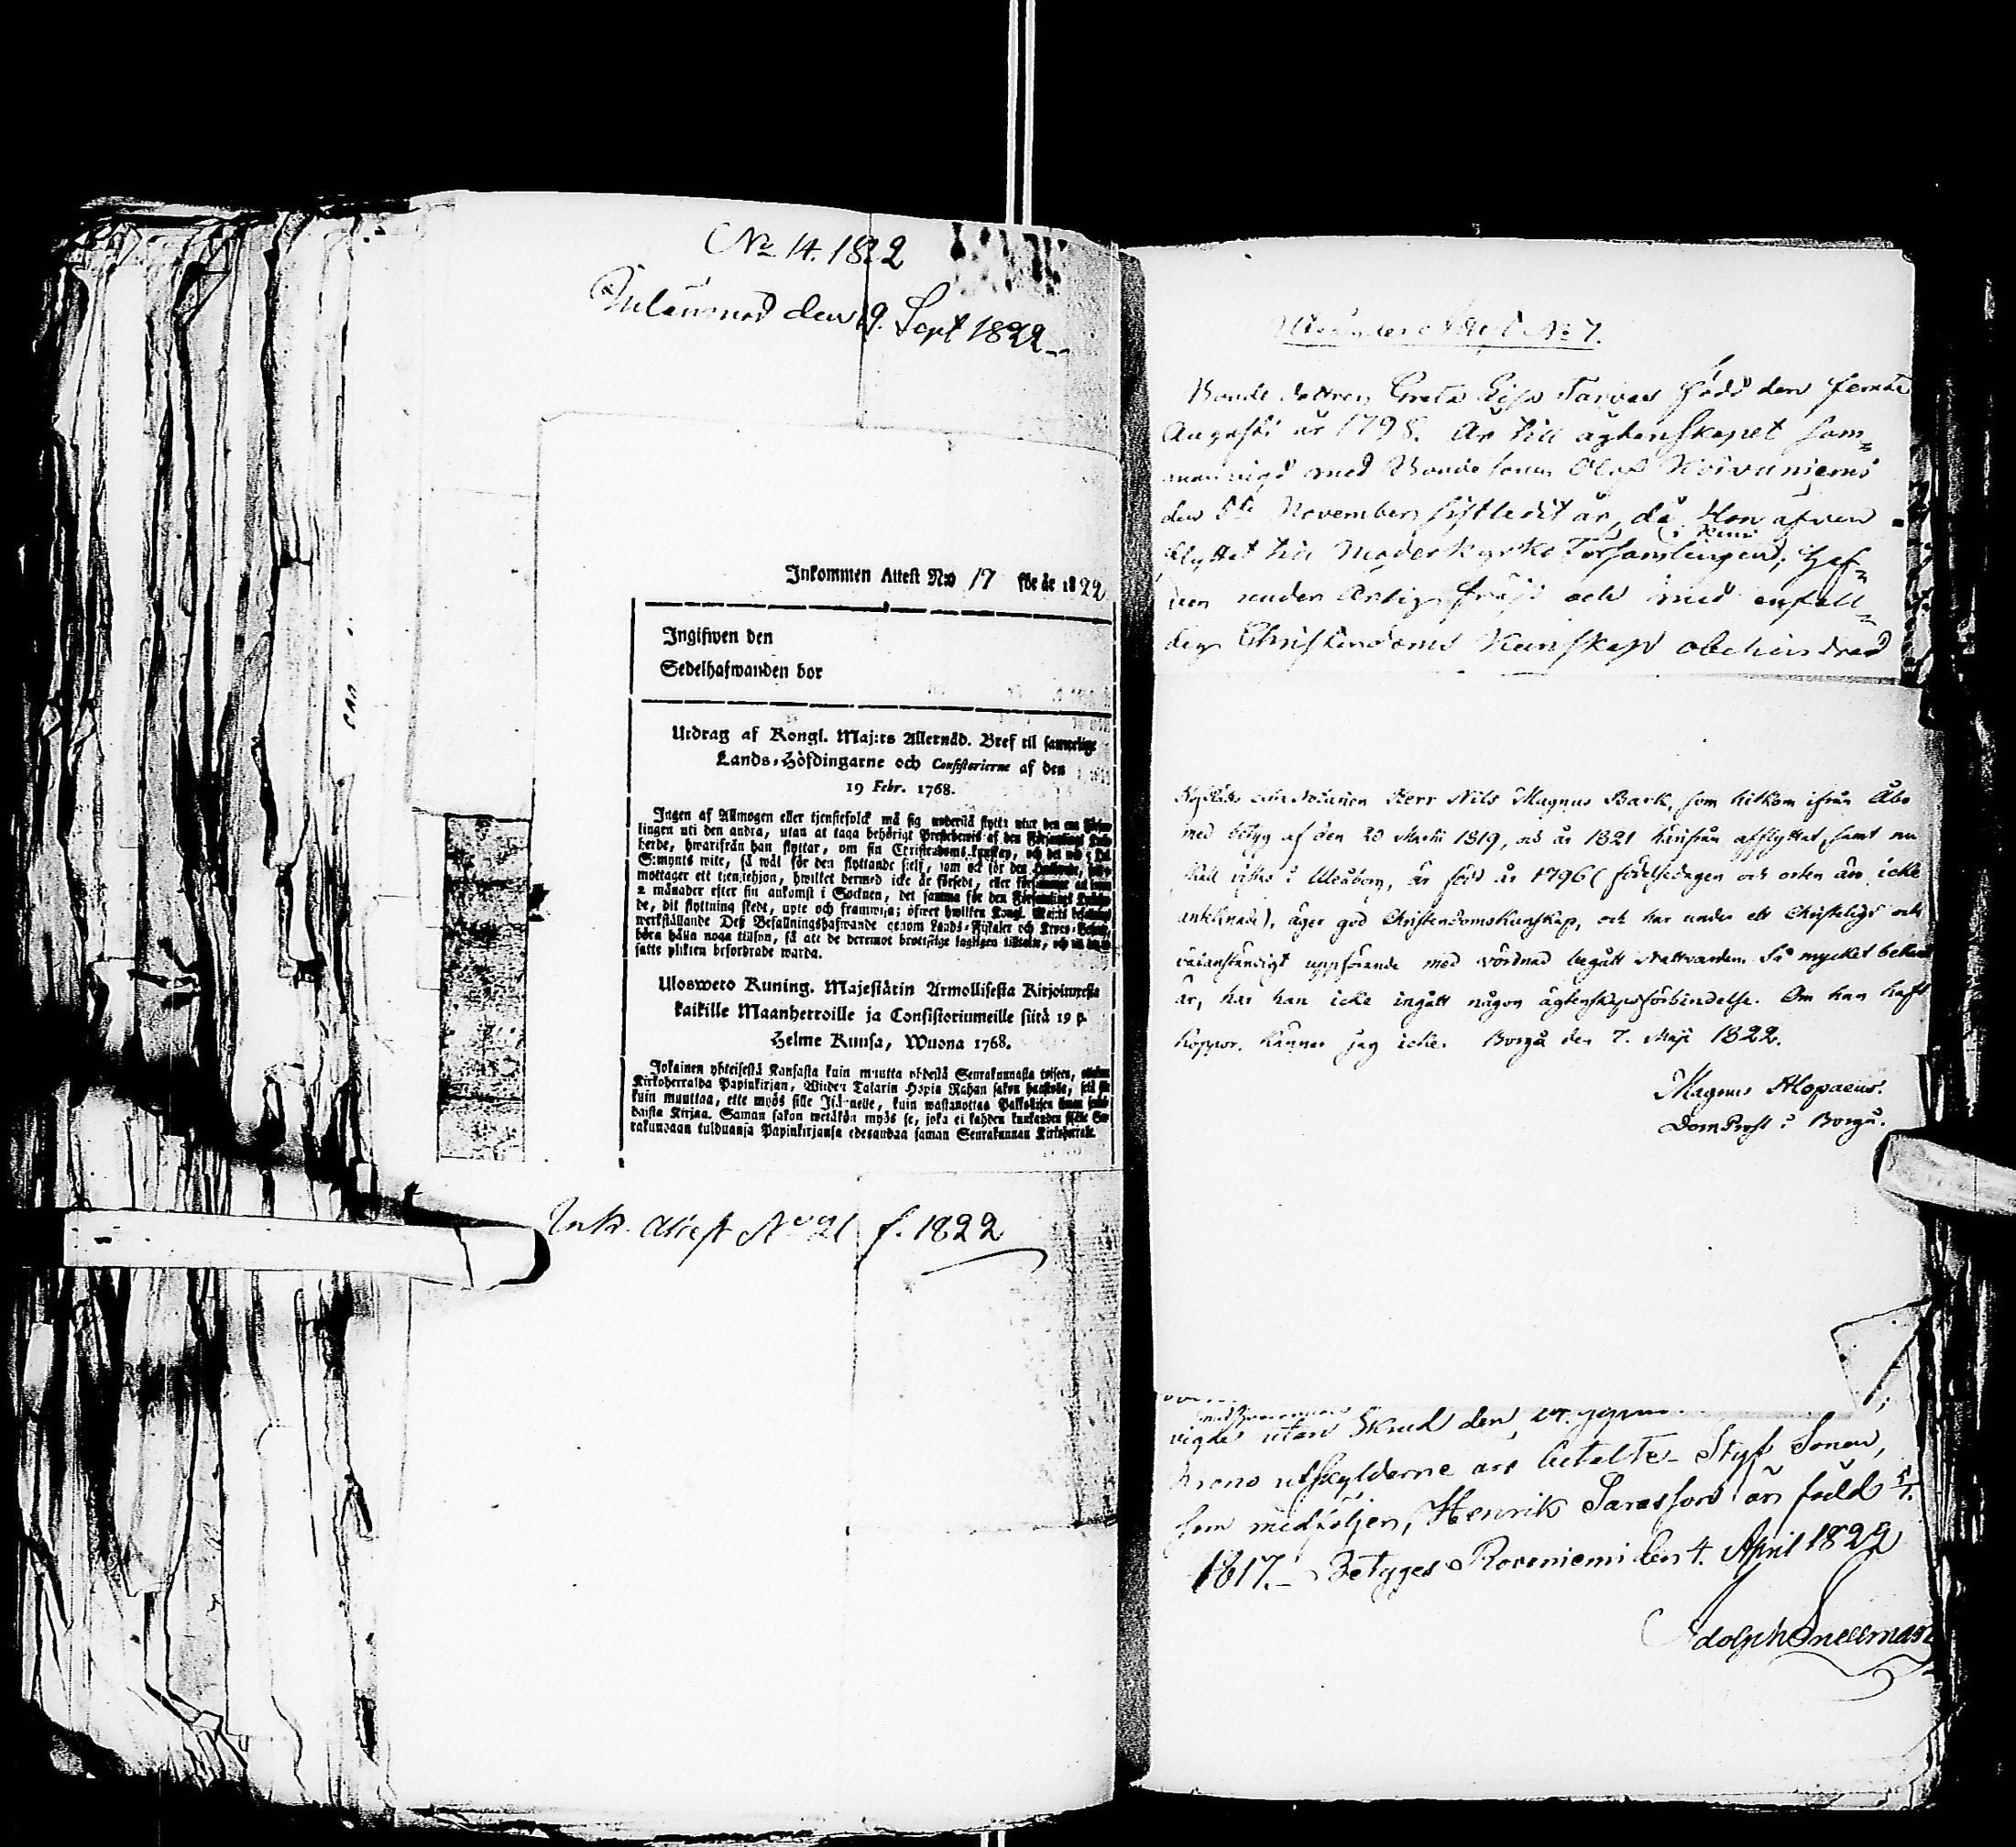 No 14. 1822
Inlämnad den 19. Sept 1822
Inkommen Attest N:o 17 för år 1822
Ingifwen den
Sedelhafwanden bor
Utdrag af Kongl. Maj:ts Allernåd. Bref til samtelige
Lands-Höfdingarne och Consistorierne af den
19 Febr. 1768.
Ingen af Allmogen eller tjenstefolck må sig understå flytta utur den ena Förſam-
lingen uti den andra, utan at taga behörigt Prestebewis af den Församlings Kyrko-
herde, hwarifrån han flyttar, om sin Christendoms kunskap, och det wid 5 Dal.
S:mynts wite, så wäl för den flyttande sielf, som ock för den
mottager ett tjenstehjon, hwilket dermed icke är försedt, eller försummar at inom
2 månader efter sin ankomst i Socknen, det samma för den Församlings Kyrkoher-
de, dit flyttning skedt, upte och framwisa; öfwer hwilken Kongl. Maj:ts befallning
werkställande Deß Befallningshafwande genom Lands-Fiskaler och Krono-Betjente,
böra hålla noga tillsyn, så att de deremot brottslige lagligen tilltalas, och til
satte plikten befordrade warda.
Ulosweto Kuning. Majestätin Armollisesta Kirjoituxesta
kaikille Maanherroille ja Consistoriumeille siitä 19 p.
Helme Kuusa, Wuona 1768.
Jokainen yhteisestä Kansasta kuin muutta yhdestä Seurakunnasta toiseen,
Kirkoherralda Papinkirjan, Wijden Talarin Hopia Rahan sakon haastolla, sekä se
kuin muuttaa, ette myös sille Isännelle, kuin wastanottaa Palkolisen ilman
daista Kirjaa. Saman sakon wetäkön myös se, joka ei kahden kuukauden sisälle Seu-
rakundaan tulduansa Papinkirjansa edesandaa saman Seurakunnan Kirkoherralle.
Ink. Attest No 21 f. 1822
No 7.
Bonde dottren Greta Lisa Tarvas född den femte
Augusti år 1798. Är till ägtenskapet sam=
manvigd med Bonde sonen Olof Koivuniemi
den 5te November sistledit år, då Hon äfven
flyttet till Moderkyrko Församlingen
Kemi
haf=
den under ärlig fräjd och med enfall=
dig Christendoms Kunskap obehindrad
Herr Nils Magnus Bark, som hitkom ifrån Åbo
med betyg af den 20 Martii 1819, och år 1821 härifrån afflyttat, samt nu
skall vistas i Uleåborg, är född år 1796 (födelsedagen och orten äro icke
antecknade), äger god Christendomskunskap, och har under ett Christeligt och
välanständigt uppförande med vördnad begått Nattvarden. Så mycket bekant
är, har han icke ingått någon ägtenskapsförbindelse. Om han haft
koppor, känner jag icke. Borgå den 7. Maji 1822.
Magnus Alopaeus.
DomProst i Borgå.
vigde utan Skrud den
Krono utskylderne äro betalte. Styf Sonen,
som medföljer, Henrik Saraśson är född
1817. Betyges Rovaniemi den 4. April 1822
Adolph Snellman